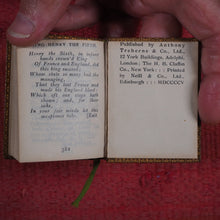 KING HENRY THE FIFTH.
Henry the Sixth, in infant
bands crown'd King
Of France and England, did
this king succeed;
Whose state so many had the
managing,
That they lost France and
made his England bleed:
Which oft our stage hath
shown; and, for their
sake,
In your fair minds let this
acceptance take.
[Exit.
382
Published by Anthony
Treherne & Co., Ltd.,
12 York Buildings, Adelphi,
London: The H. B. Claflin
Co., New York: : : Printed
by Neill & Co., Ltd.,
Edinburgh : : : MDCCCCV